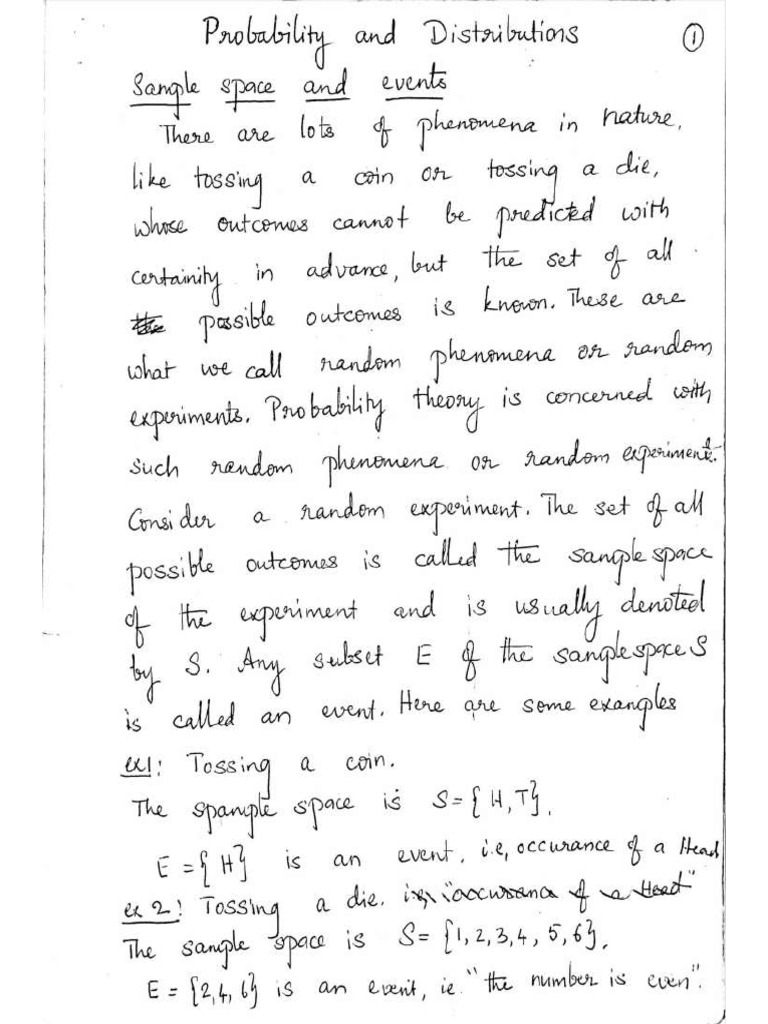 Probability and Distributions ①
Sample space and events
There are lots of phenomena in nature,
like tossing a coin or tossing a die,
whose outcomes cannot be predicted with
certainity in advance, but the set of all
possible outcomes is known. These are
what we call random phenomena or random
experiments. Probability theory is concerned with
such random phenomena or random experiments.
Consider a random experiment. The set of all
possible outcomes is called the sample space
of the experiment and is usually denoted
by S. Any subset E of the sample space S
is called an event. Here are some examples
ex1: Tossing a coin.
The spample space is S={H,T}.
E={H} is an event, i.e, occurance of a Head
ex 2: Tossing a die. i.e, "occurance of a Head"
The sample space is S= {1,2,3,4, 5,6}.
E = {2,4,6} is an event, ie. "the number is even".